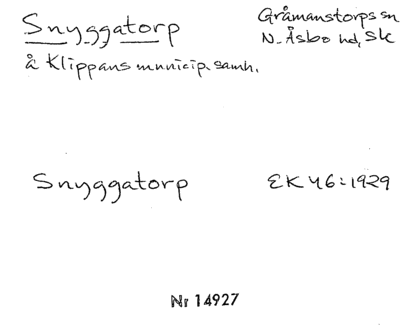 Snyggatorp
Gråmanstorps sn
N. Åsbo hd, Sk
å Klippans municip. samh.
Snyggatorp
EK 46:1929
Nr 14927